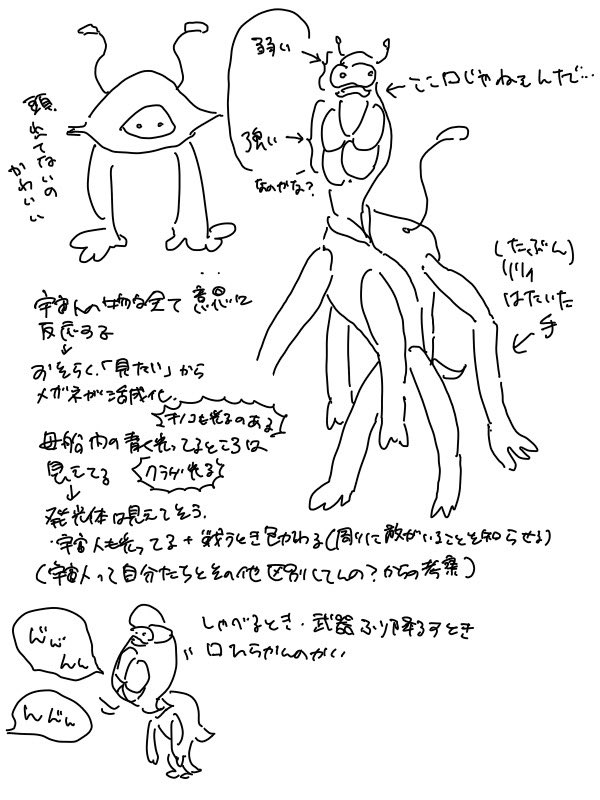 頭出てないの
かわいい
弱い
ここ口じゃねぇんだで…
強い
なのかな?
(たぶん)
はたいた
手
宇宙人の物な全て意思に
反応する
↓
おそらく、「見たい」から
メガネが活成化
キノコも光るのある
母船内の青く光ってるところは
見えてる
クラゲ光る
↓
発光体は見えてそう。
・宇宙人も光ってる+戦うとき色かわる(周りに敵がいることを知らせる)
(宇宙人って自分たちとその他区別してんの?からの考察)
しゃべるとき・武器ふり降ろすとき
口ひらかんのかい
んん